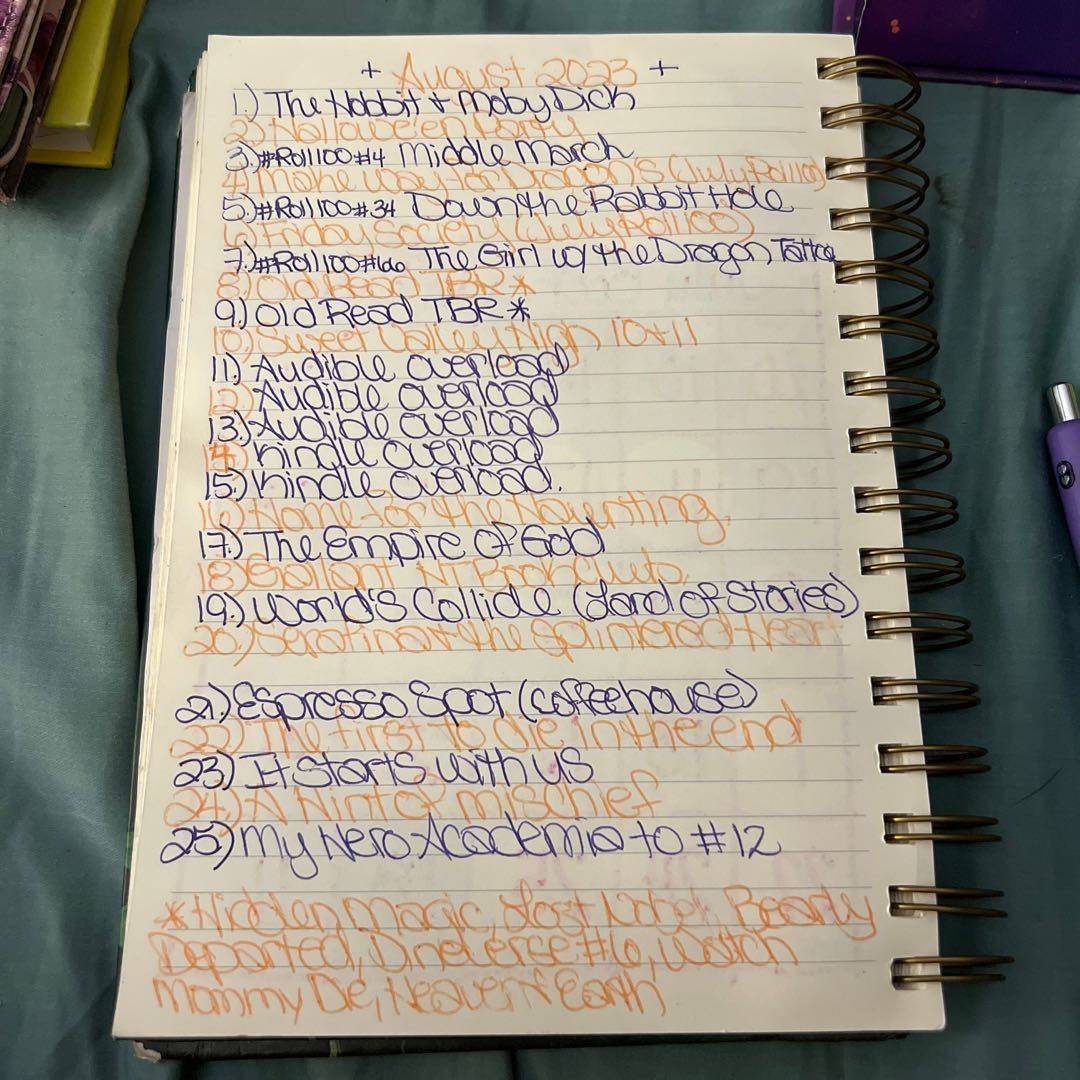 + August 2023 +
1.) The Hobbit & Moby Dich
2.) Hallowe'en Party
3.) #Roll100 #4 Middle March
4.) Make Way for Dragon's (July Roll 100)
5.) #Roll100 #34 Down the Rabbit Hole
6.) Friday Society (July Roll 100)
7.) #Roll100 #66 The Girl w/ the Dragon Tattoo
8.) Old Read TBR *
9.) Old Read TBR *
10.) Sweet Valley High 10 & 11
11.) Audible overload
12.) Audible overload
13.) Audible overload
14.) Kindle overload
15.) Kindle overload.
16.) Home for the Haunting.
17.) The Empire of Gold
18.) Gallant NT Book Club.
19.) World's Collide (Land of Stories)
20.) Serafina & the Splintered Heart
21.) Espresso Spot (coffeehouse)
22.) The first to die in the end
23.) It starts with us
24.) A Hint of mischief
25.) My Hero Academia to #12
* Hidden Magic, Lost Nobel, Bearly
Departed, #6, Watch
Mommy Die, Heaven & Earth